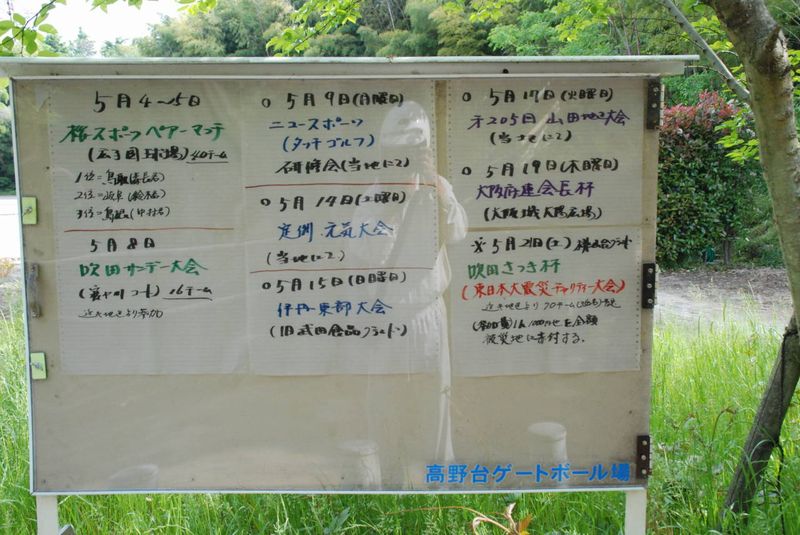 5月4〜5日
桜スポーツペアーマッチ
(広島国球場)40チーム
1位=鳥取
2位=岐阜(鈴木名)
3位=鳥取(中村名)
5月8日
吹田サンデー大会
(寝や川コート)16チーム
近大地区より参加
○5月9日(月曜日)
ニュースポーツ
(タッチゴルフ)
研修会(当地にて)
○5月14日(土曜日)
定例 元気大会
(当地にて)
○5月15日(日曜日)
伊丹東部大会
(旧武田食品グランド)
○5月17日(火曜日)
才205回 山田地区大会
(当地にて)
○5月19日(木曜日)
大阪府連会長杯
(大阪城太陽広場)
※5月21日(土)
吹田さつき杯
(東日本大震災チャリティー大会)
全額
被災地に寄付する。
高野台ゲートボール場